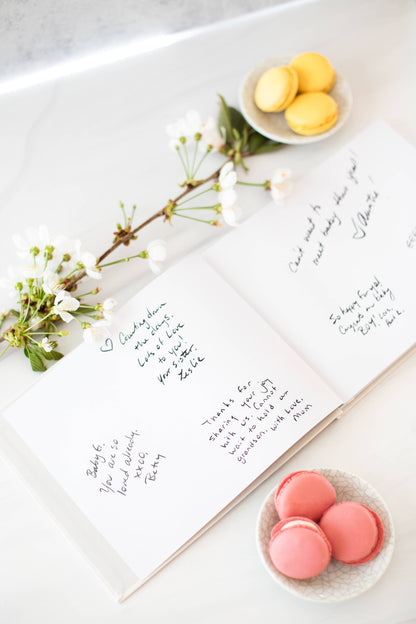 ♡ Counting down
the days.
Lots of Love
to you!
Your sister,
Leslie
Baby G.
You are so
loved already.
xxoo,
Betsy
Thanks for
sharing your joy
with us. Cannot
wait to hold our
grandson. with Love,
Mom
Can't wait to
meet baby
♡ Auntie
So happy for you!
Congrats on baby
Boy! Love,